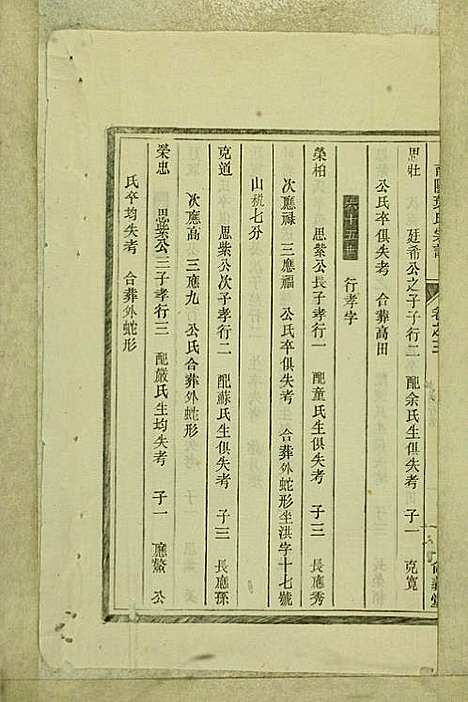 南陽葉氏宗譜 卷之三
思壯 廷希公之子子行二 配余氏生俱失考 子一 克寬
公氏卒俱失考 合葬高田
六十五世 行孝字
榮柏 思紫公長子孝行一 配童氏生俱失考 子三 長應秀
次應祿 三應福 公氏卒俱失考 合葬外蛇形坐洪字十七號
山稅七分
克道 思紫公次子孝行二 配蘇氏生俱失考 子三 長應孫
次應高 三應九 公氏合葬外蛇形
榮忠 思紫公三子孝行三 配嚴氏生均失考 子一 應鰲 公
氏卒均失考 合葬外蛇形